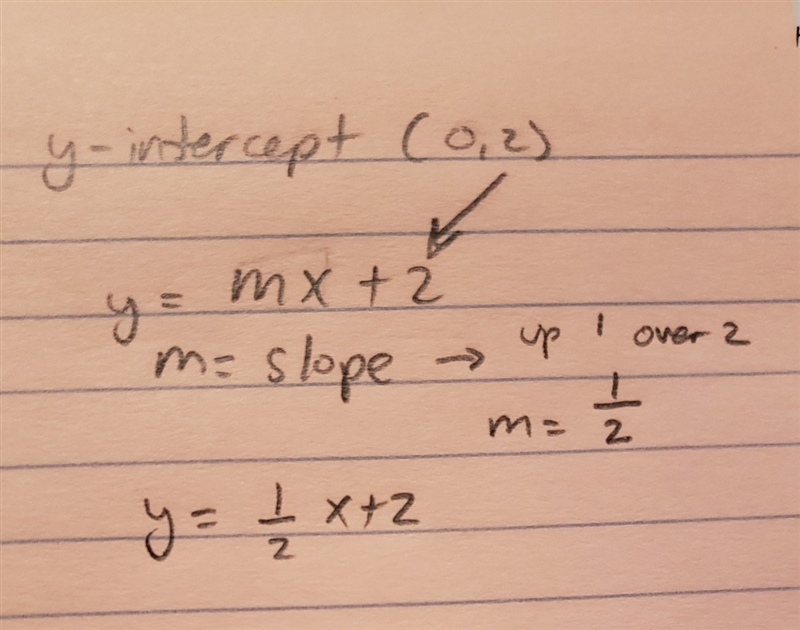 y-intercept (0,2)
y = mx + 2
m = slope → up 1 over 2
m = 1/2
y = 1/2 x + 2